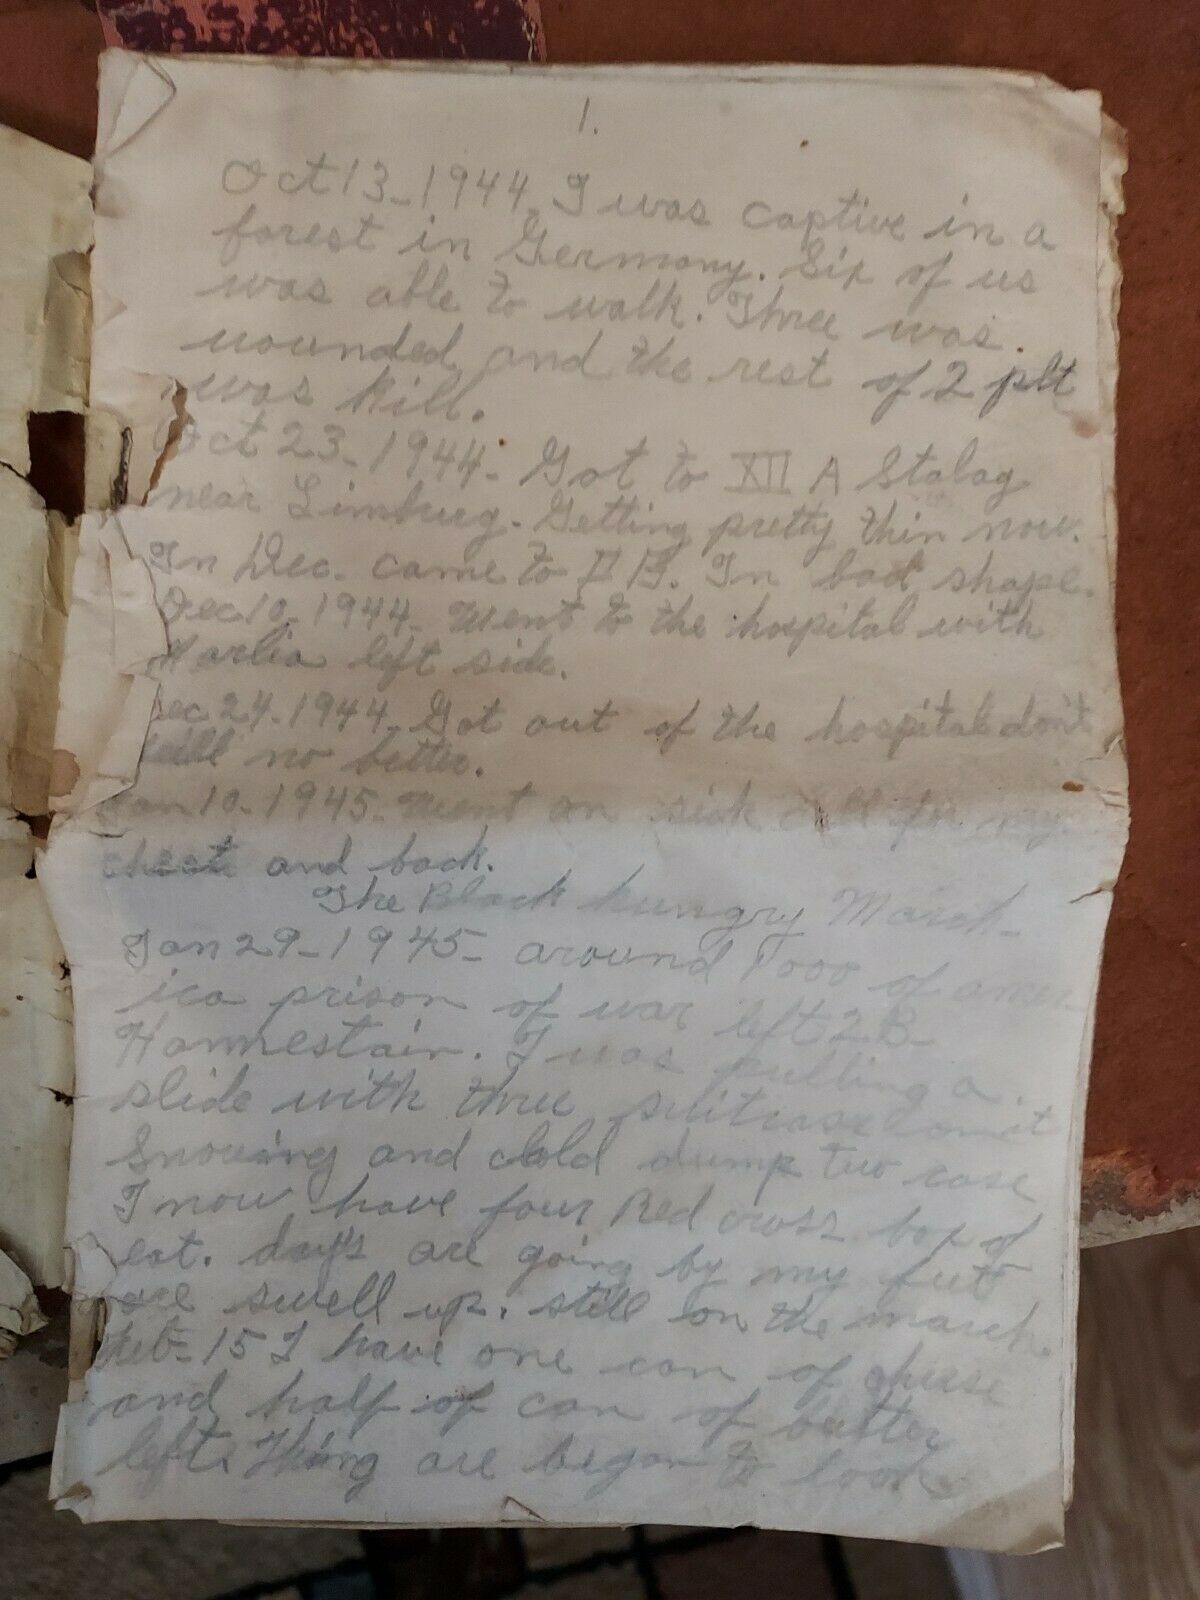 1.
Oct 13-1944 I was captive in a
forest in Germany. Six of us
was able to walk. Three was
wounded and the rest of 2 plt
was kill.
Oct 23-1944- Got to XII A Stalag
near Limburg. Getting pretty thin now.
In Dec. came to II B. In bad shape.
Dec 10-1944- Went to the hospital with
left side.
Dec 24-1944- Got out of the hospital don't
no better.
Jan 10-1945- Went on sick call for my
chest and back.
The Black hungry March-
Jan 29-1945- around 1000 of amer
ica prison of war left 2 B-
Hammestain. I was pulling a
slide with three suitcase on it
Snowing and clold dump two case
I now have four Red cross box of
eat. days are going by my feet
are swell up. still on the march.
Feb-15 I have one can of cheese
and half of can of butter
left. Thing are began to look